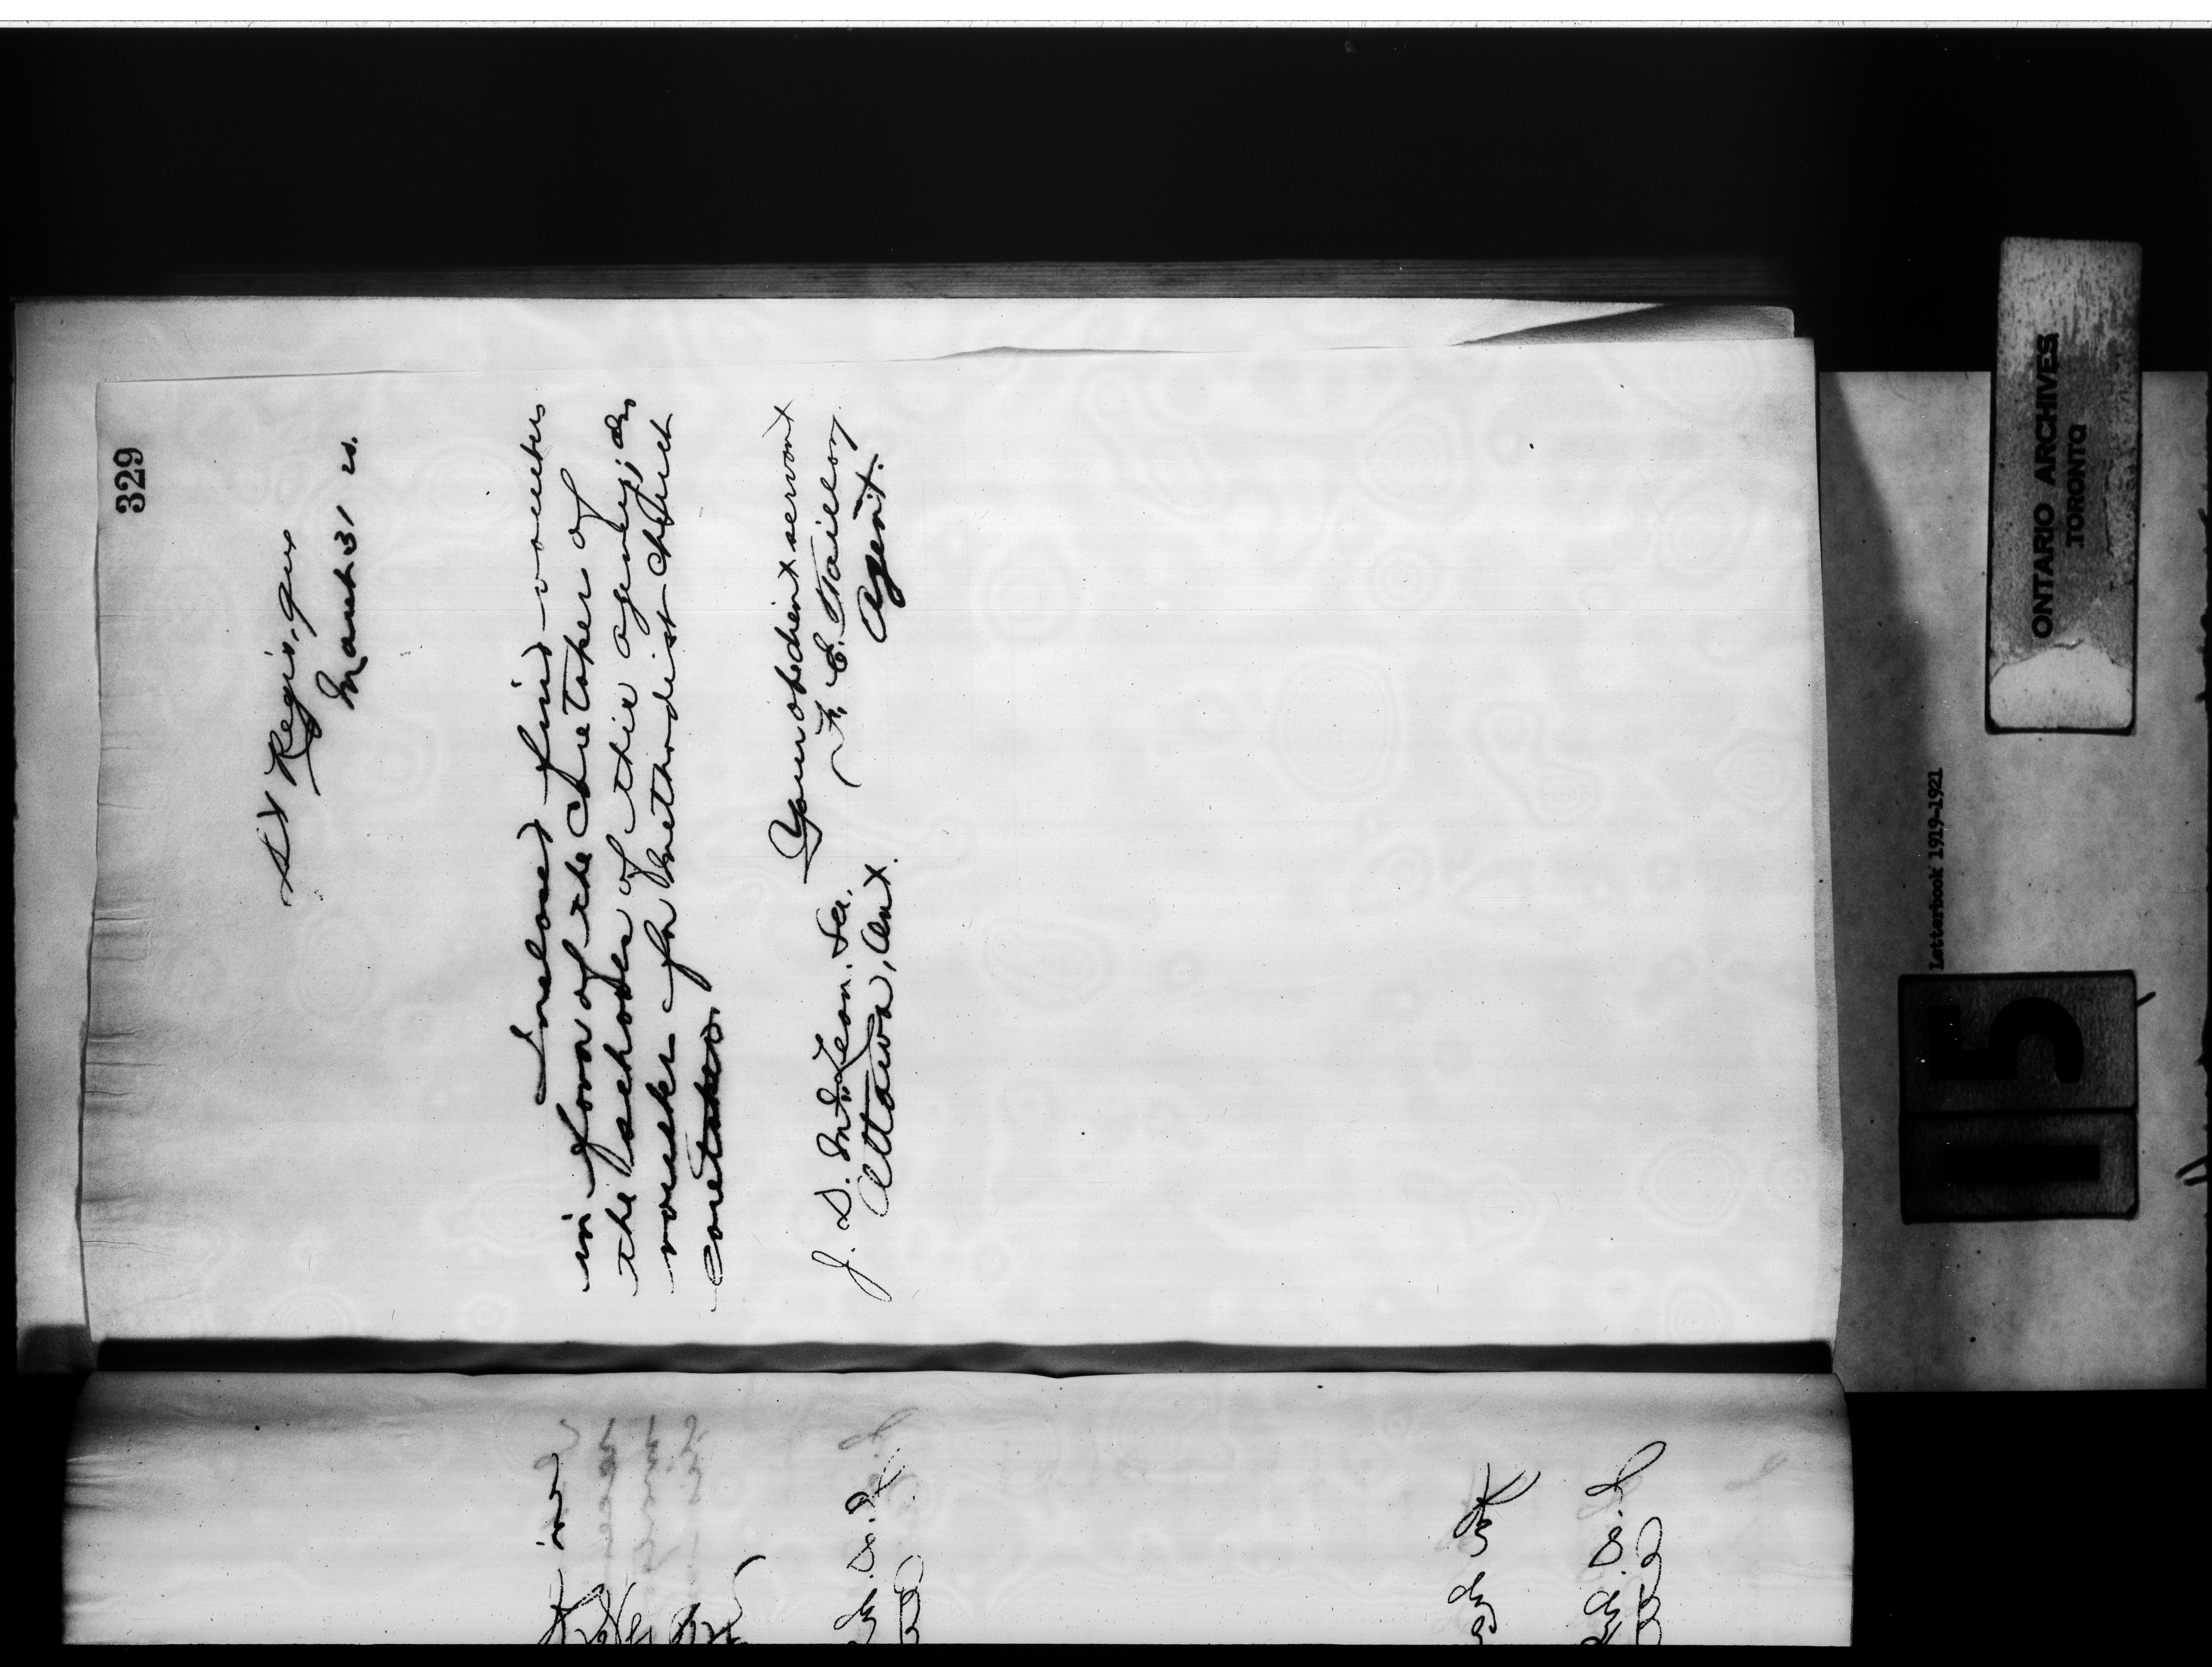 329
St Regis, Que
March 31 20.
Inclosed find vouchers
in favor of the caretakers of
the schools of this agency, also
voucher for Methodist church
caretaker.
Your obedient servant
F. E. Taillon,
Agent.
J. D. McLean. Sec.
Ottawa, Ont.
ONTARIO ARCHIVES
TORONTO
Letterbook 1919-1921
115